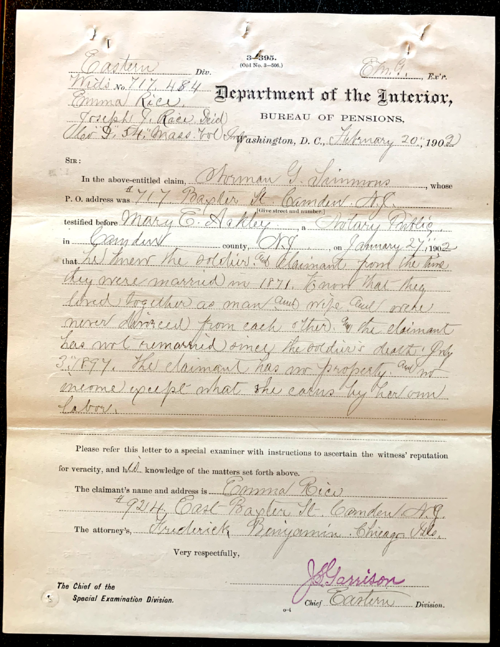 3-395.
(Old No. 3-506.)
Eastern Div.
Wid's No. 717,484
Emma Rice
Joseph J. Rice Decd
Co D. 54" Mass Vol Inf
Ex'r.
Department of the Interior,
BUREAU OF PENSIONS,
Washington, D. C., February 20", 1902
SIR:
In the above-entitled claim, Norman G. Simmons, whose
P. O. address was # 717 Baxter St. Camden N.J.
(Give street and number.)
testified before Mary E. Ackley, a Notary Public
in Camden county, N.J., on January 27", 1902
that he knew the soldier & claimant from the time
they were married in 1871. Know that they
lived together as man and wife and were
never divorced from each other & the claimant
has not remarried since the soldier's death July
3", 1897. The claimant has no property and no
income except what she earns by her own
labor.
Please refer this letter to a special examiner with instructions to ascertain the witness' reputation
for veracity, and his knowledge of the matters set forth above.
The claimant's name and address is Emma Rice
# 924 East Baxter St. Camden N.J
The attorney's, Frederick Benjamin Chicago Ills.
Very respectfully,
Garrison
The Chief of the
Special Examination Division.
6-4
Chief Eastern Division.